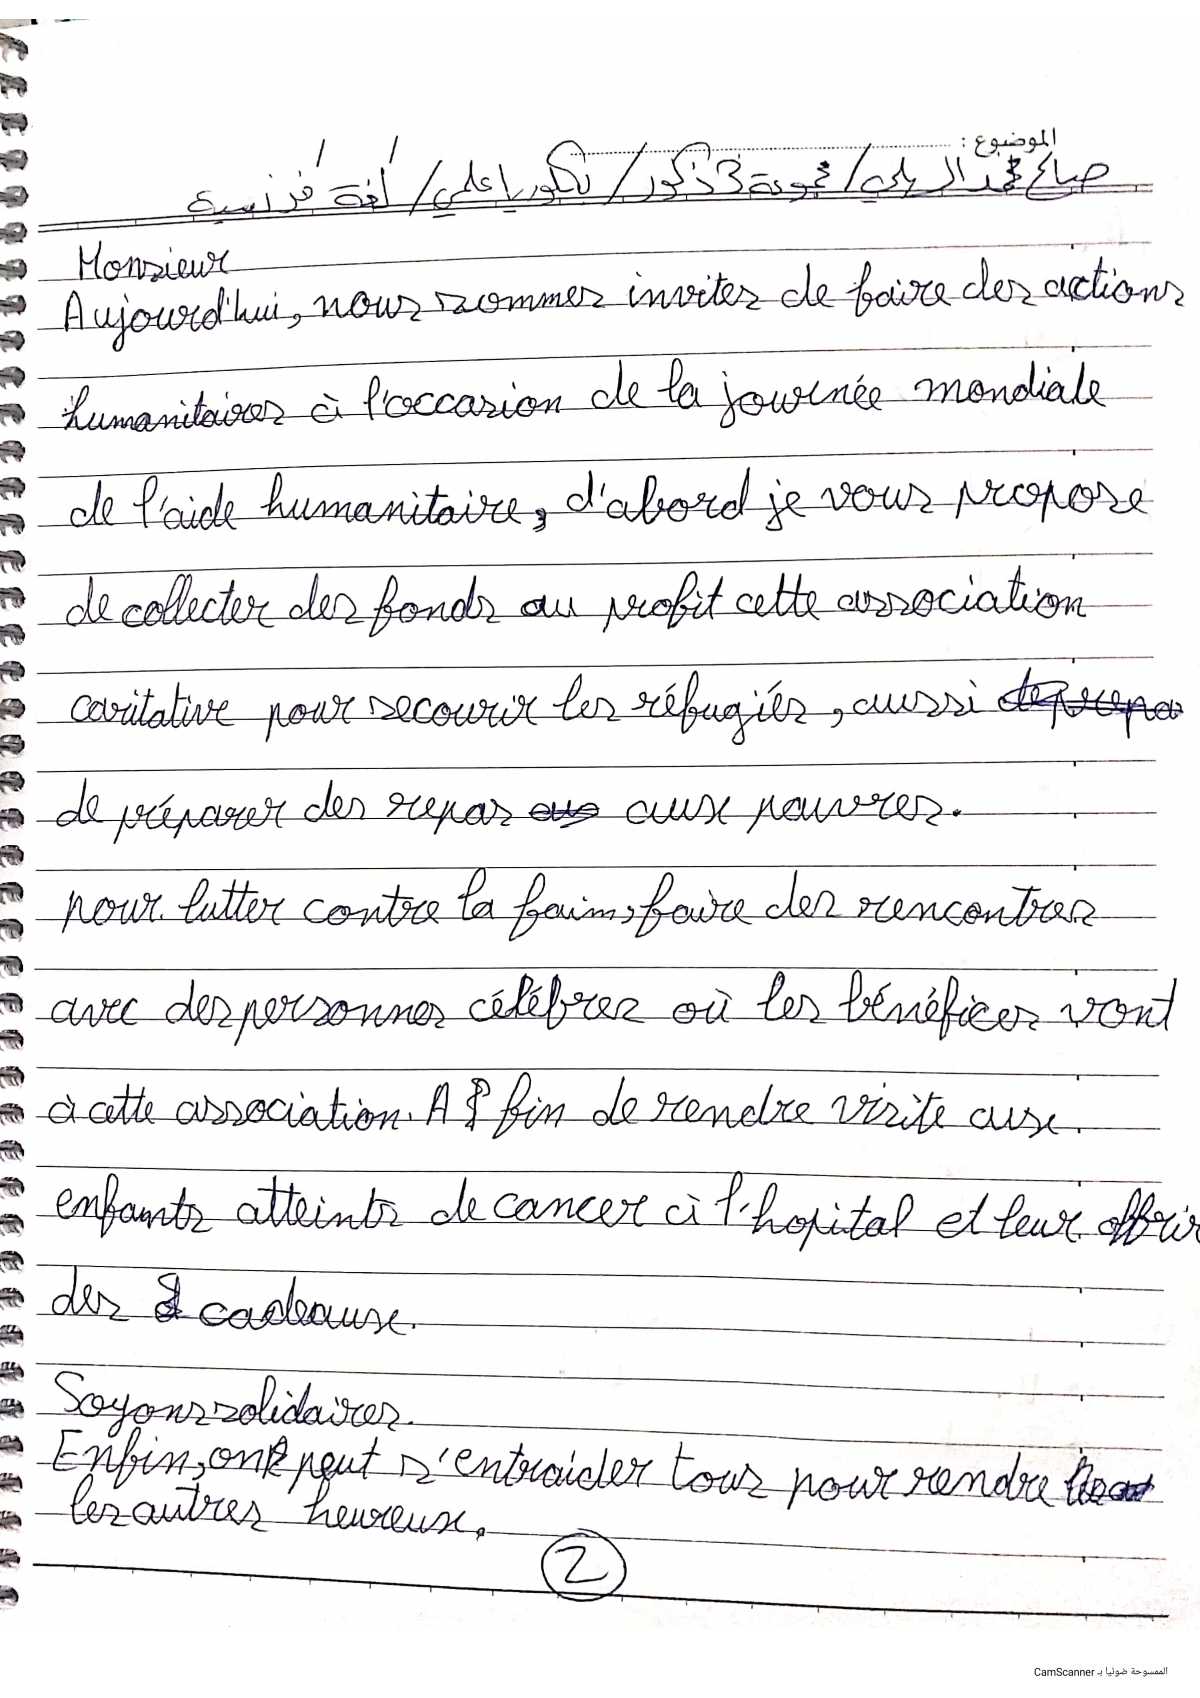 الموضوع :
صالح محمد الريلي / مجموعة 3 ذكور / بكلوريا علمي / لغة فرنسية
Monsieur
Aujourd'hui, nous sommes invités de faire des actions
humanitaires à l'occasion de la journée mondiale
de l'aide humanitaire, d'abord je vous propose
de collecter des fonds au profit cette association
caritative pour secourir les réfugiés, aussi
de préparer des repas aux pauvres.
pour lutter contre la faim, faire des rencontres
avec des personnes célébres où les bénéfices vont
à cette association. A fin de rendre visite aux
enfants atteints de cancer à l'hopital et leur offrir
des cadeaux.
Soyons solidaires.
Enfin, on peut s'entraider tous pour rendre
les autres heureux.
2
الممسوحة ضوئيا بـ CamScanner